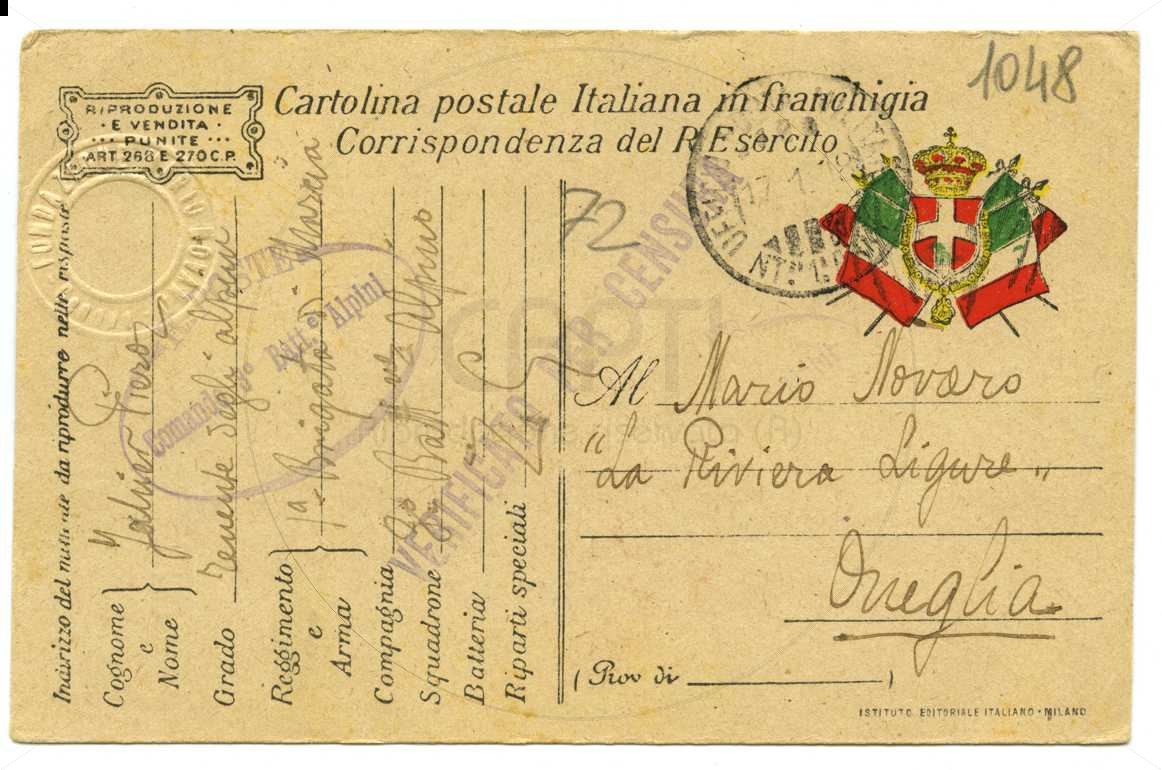 1048
RIPRODUZIONE
E VENDITA
PUNITE
ART. 268 E 270 C.P.
Cartolina postale Italiana in franchigia
Corrispondenza del R. Esercito
17.1.18
72
VERIFICATO PER CENSURA
Comando Batt. Alpini
FONDAZIONE MARIO NOVARO
Indirizzo del mittente da riprodurre nelle risposte
Cognome
e
Nome
Jahier Piero
Grado Tenente degli alpini
Reggimento
e
Arma
1a Brigata di Marcia
Compagnia
Squadrone Batt
Batteria
Riparti speciali
Al Mario Novaro
"La Riviera Ligure"
Oneglia
(Prov di )
ISTITUTO EDITORIALE ITALIANO • MILANO